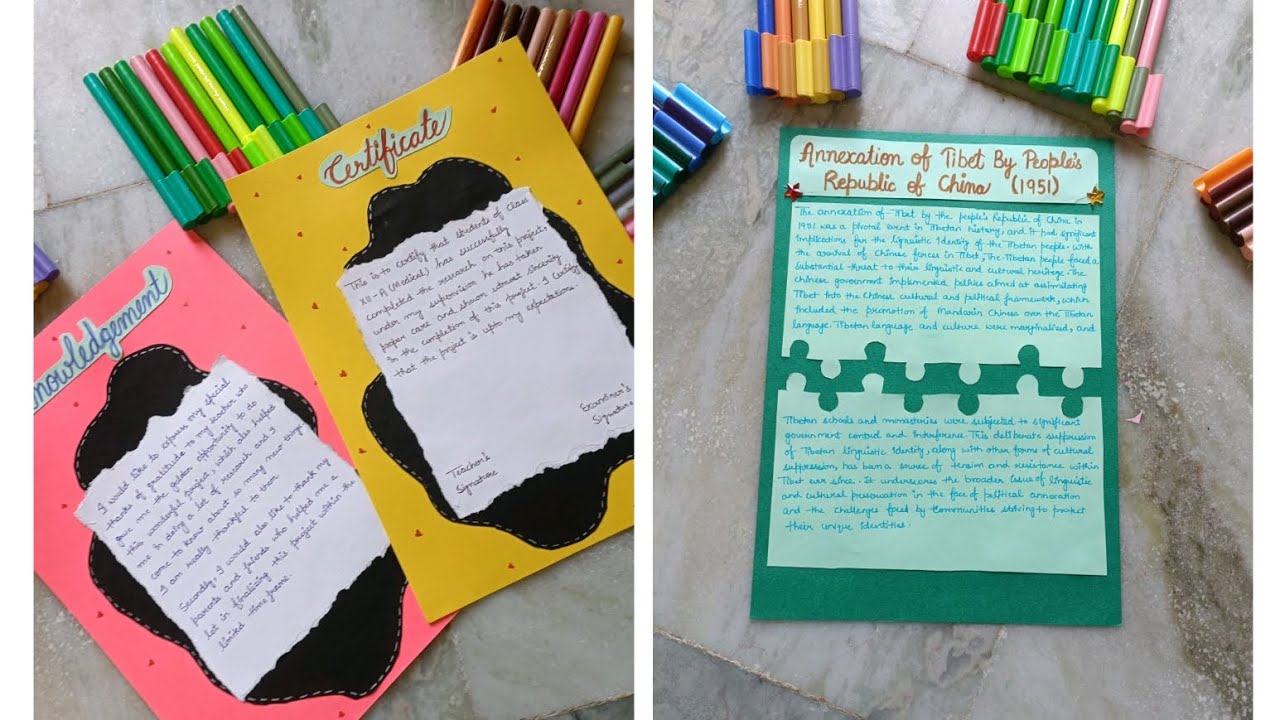 nowledgement
I would like to express my special
thanks of gratitude to my teacher who
gave me the golden opportunity to do
this wonderful project, which also helped
me in doing a lot of research and I
come to know about so many new things
I am really thankful to them
Secondly, I would also like to thank my
parents and friends who helped me a
lot in finalizing this project within the
limited time frame.
Certificate
This is to certify that students of Class
XII-A (Medical) has successfully
completed the research on this project
under my supervision he has taken
proper care and shown utmost sincerity
In the completion of this project. I certify
that the project is upto my expectations.
Examiner's
Signature
Teacher's
Signature
Annexation of Tibet By People's
Republic of China (1951)
The annexation of Tibet by the people's Republic of China in
1951 was a pivotal event in Tibetan history, and it had significant
Implications for the linguistic Identity of the Tibetan people. With
the arrival of Chinese forces in Tibet, The Tibetan people faced a
substantial threat to their linguistic and cultural heritage. The
Chinese government Implemented policies aimed at assimilating
Tibet Into the Chinese cultural and political framework, which
Included the promotion of Mandarin Chinese over the Tibetan
language. Tibetan language and culture were marginalized, and
Tibetan schools and monasteries were subjected to significant
government control and Interference. This deliberate suppression
of Tibetan linguistic Identity, along with other forms of cultural
suppression, has been a source of tension and resistance within
Tibet ever since. It underscores the broader Issue of linguistic
and cultural preservation in the face of political annexation
and the challenges faced by Communities striving to protect
their unique Identities.